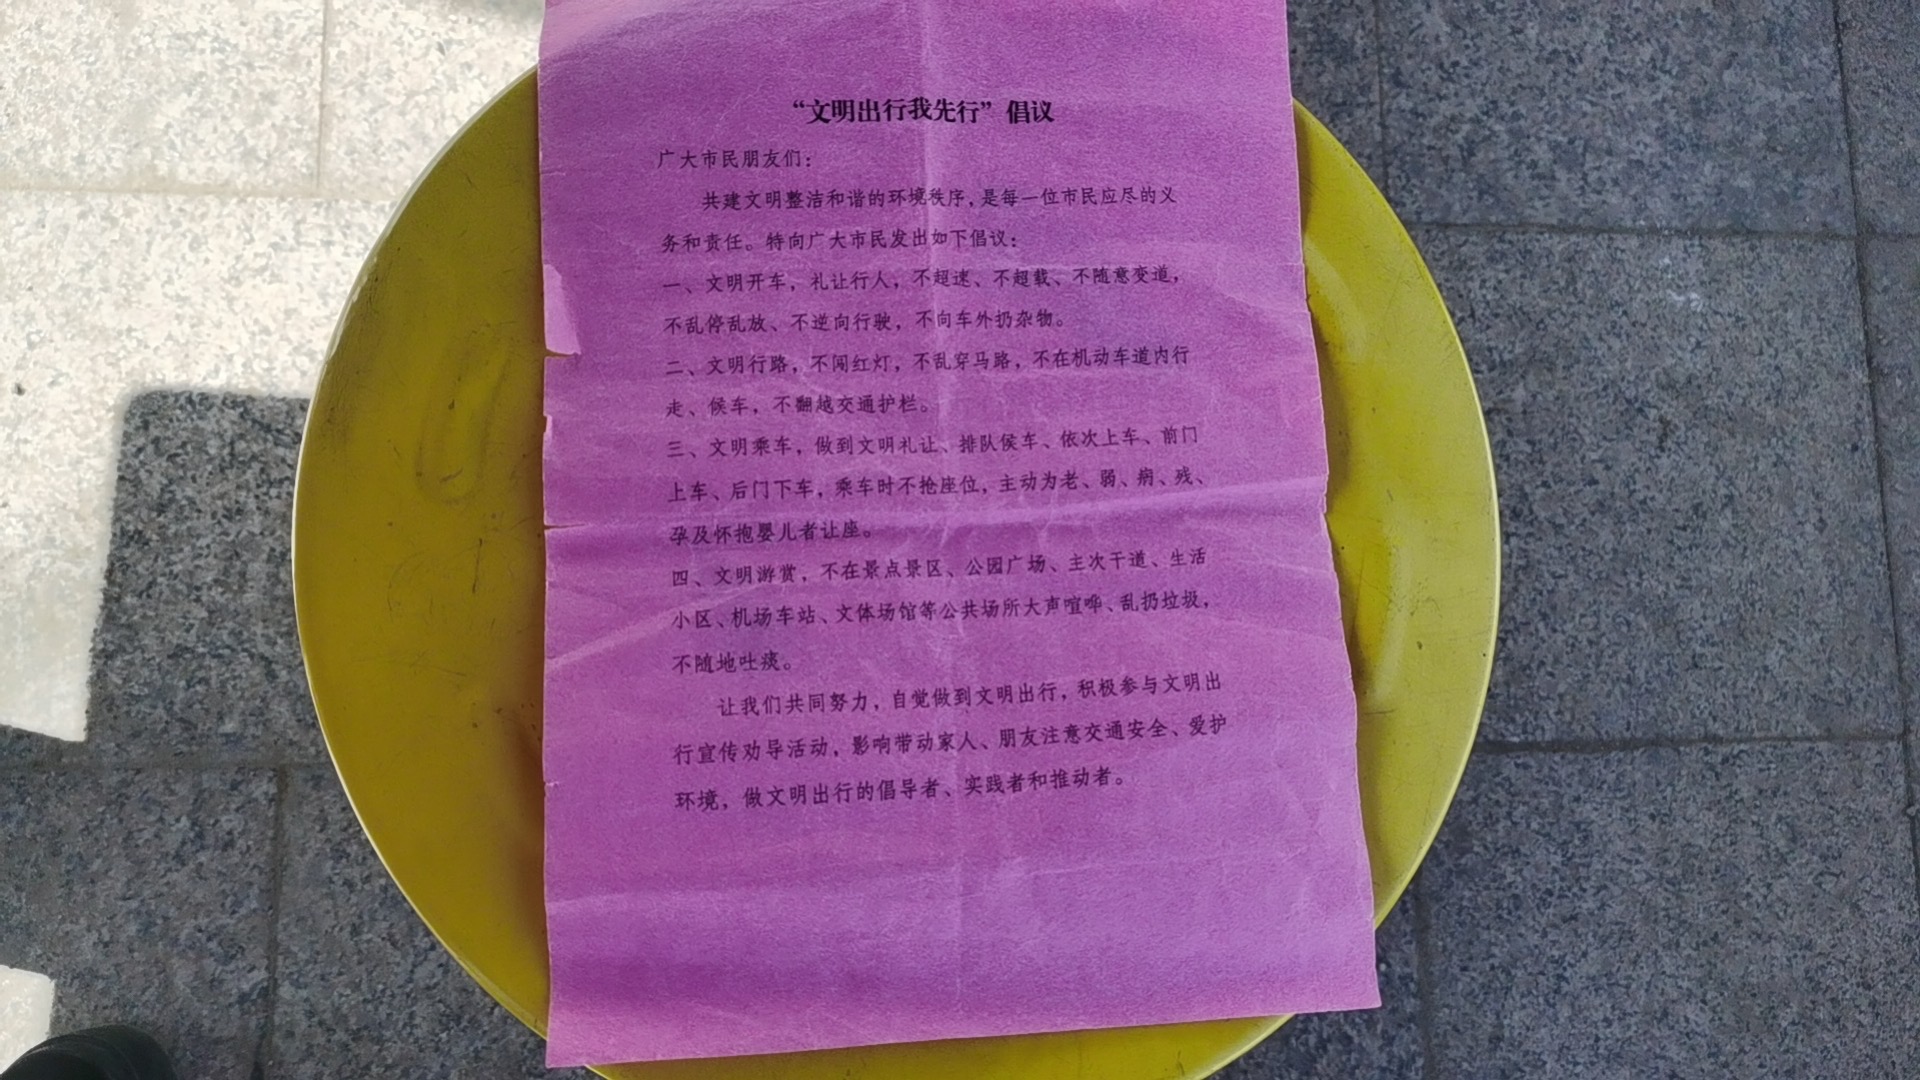 “文明出行我先行”倡议
广大市民朋友们：
共建文明整洁和谐的环境秩序，是每一位市民应尽的义
务和责任。特向广大市民发出如下倡议：
一、文明开车，礼让行人，不超速、不超载、不随意变道，
不乱停乱放、不逆向行驶，不向车外扔杂物。
二、文明行路，不闯红灯，不乱穿马路，不在机动车道内行
走、候车，不翻越交通护栏。
三、文明乘车，做到文明礼让、排队侯车、依次上车、前门
上车、后门下车，乘车时不抢座位，主动为老、弱、病、残、
孕及怀抱婴儿者让座。
四、文明游赏，不在景点景区、公园广场、主次干道、生活
小区、机场车站、文体场馆等公共场所大声喧哗、乱扔垃圾，
不随地吐痰。
让我们共同努力，自觉做到文明出行，积极参与文明出
行宣传劝导活动，影响带动家人、朋友注意交通安全、爱护
环境，做文明出行的倡导者、实践者和推动者。